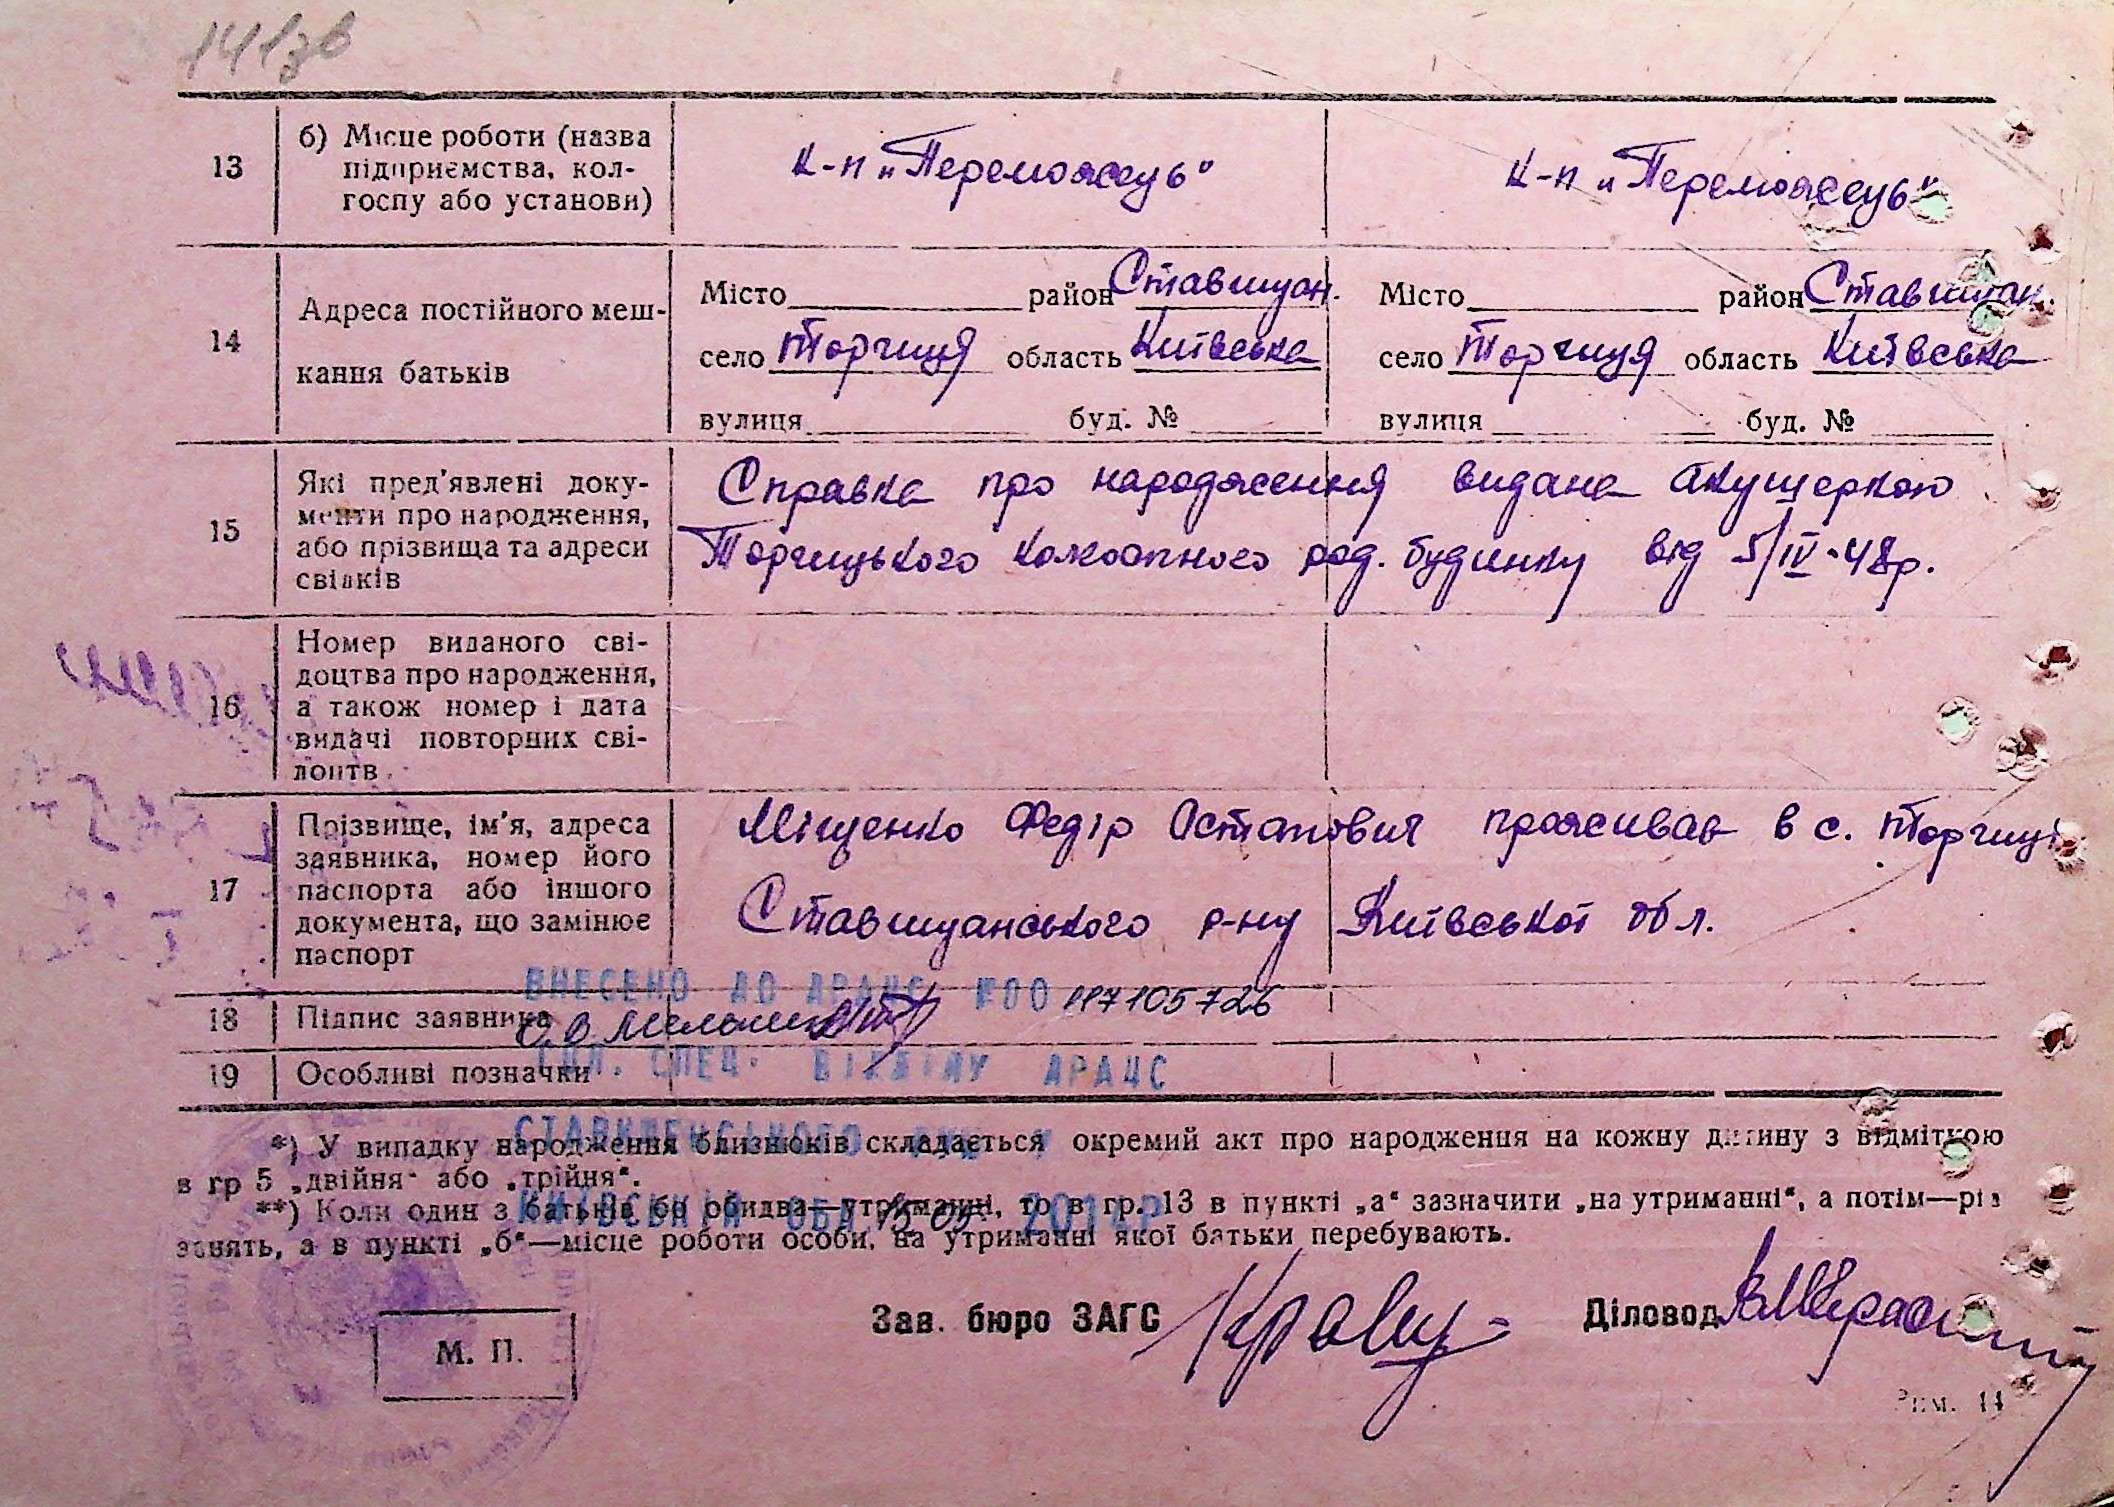 141зв
13
б) Місце роботи (назва
підприємства, кол-
госпу або установи)
к-п „Переможець"
к-п „Переможець"
14
Адреса постійного меш-
кання батьків
Місто район Ставищан.
село Торчиця область Київська
вулиця буд. №
Місто район Ставищан.
село Торчиця область Київська
вулиця буд. №
15
Які пред'явлені доку-
менти про народження,
або прізвища та адреси
свідків
Справка про народження видана акушеркою
Торчицького колгоспного род. будинку від 5/IV-48р.
16
Номер виданого сві-
доцтва про народження,
а також номер і дата
видачі повторних сві-
доцтв
17
Прізвище, ім'я, адреса
заявника, номер його
паспорта або іншого
документа, що замінює
паспорт
Міщенко Федір Остапович проживає в с. Торчиці
Ставищанського р-ну Київської обл.
ВНЕСЕНО ДО ДРАЦС №00 117105726
18
Підпис заявника
О.В. Мельник
19
Особливі позначки
СПЕЦ. ВІДДІЛУ ДРАЦС
*) У випадку народження близнюків складається окремий акт про народження на кожну дитину з відміткою
в гр 5 „двійня" або „трійня".
**) Коли один з батьків бо обидва—утриманці, то в гр. 13 в пункті „а" зазначити „на утриманні", а потім—рід
занять, а в пункті „б"—місце роботи особи, на утриманні якої батьки перебувають.
КИЇВСЬКІЙ ОБЛ. 15.05. 2014Р
М. П.
Зав. бюро ЗАГС
Діловод